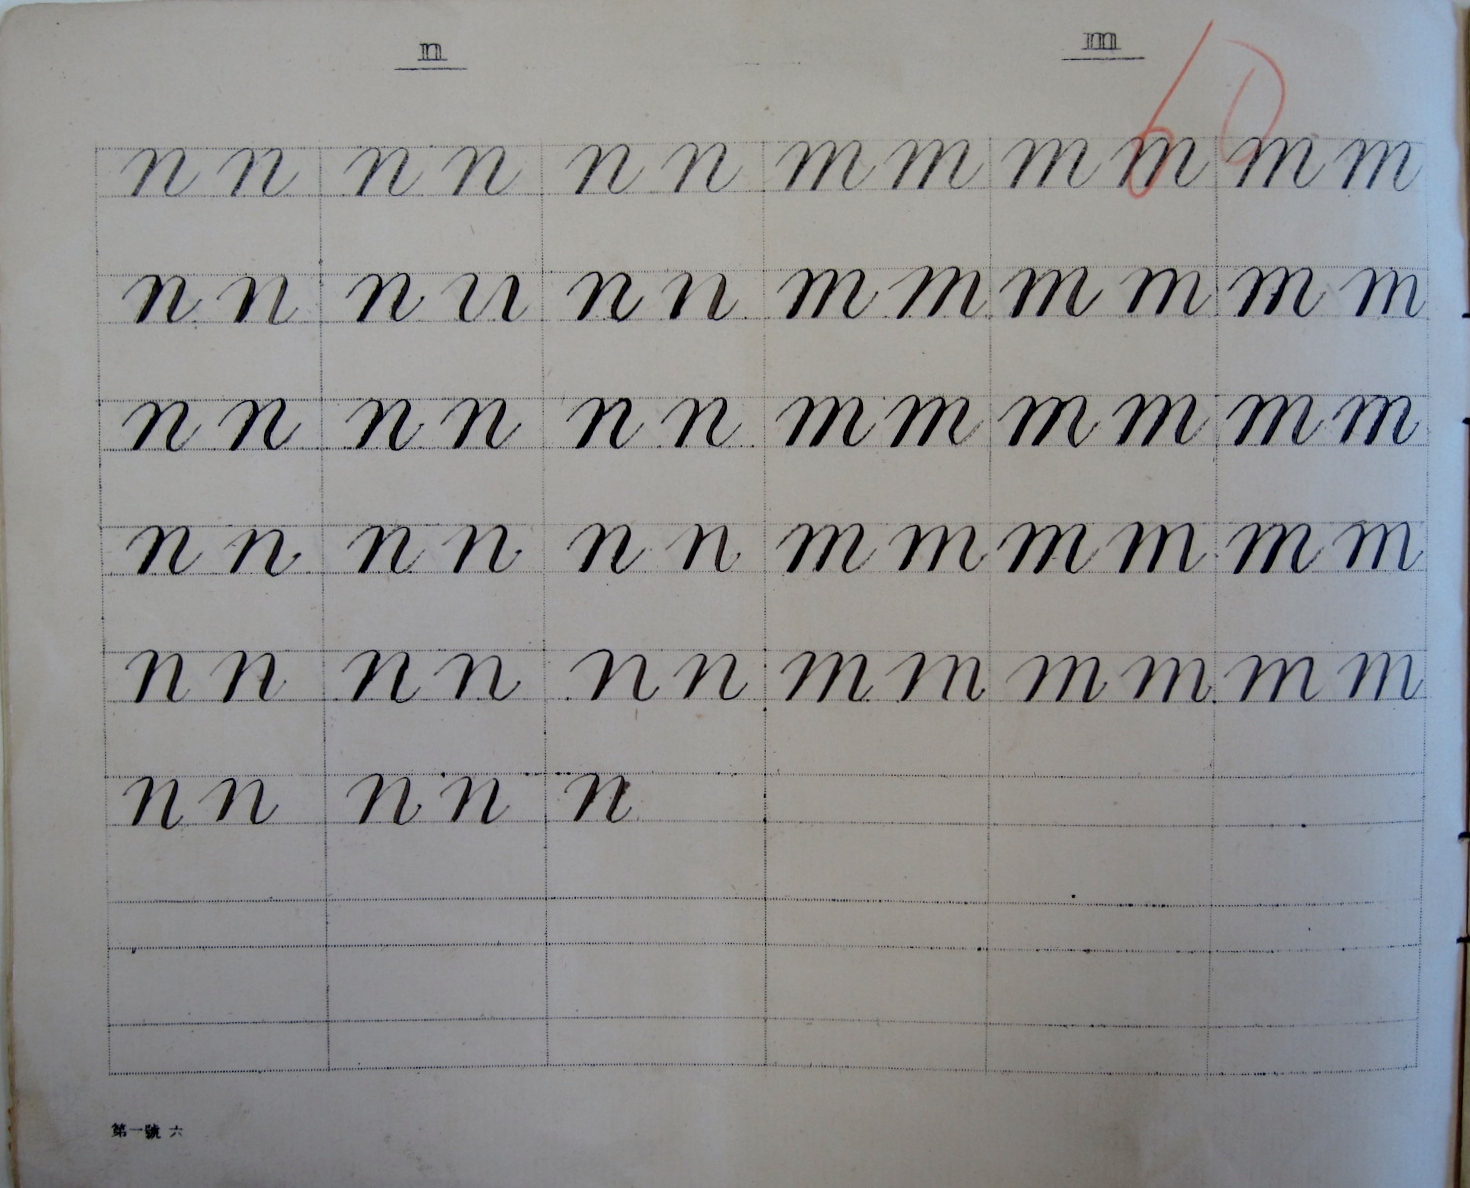 n m
60
n n n n n n m m m m m m
n n n u n n m m m m m m
n n n n n n m m m m m m
n n n n n n m m m m m m
n n n n n n m m m m m m
n n n n n
第一號 六